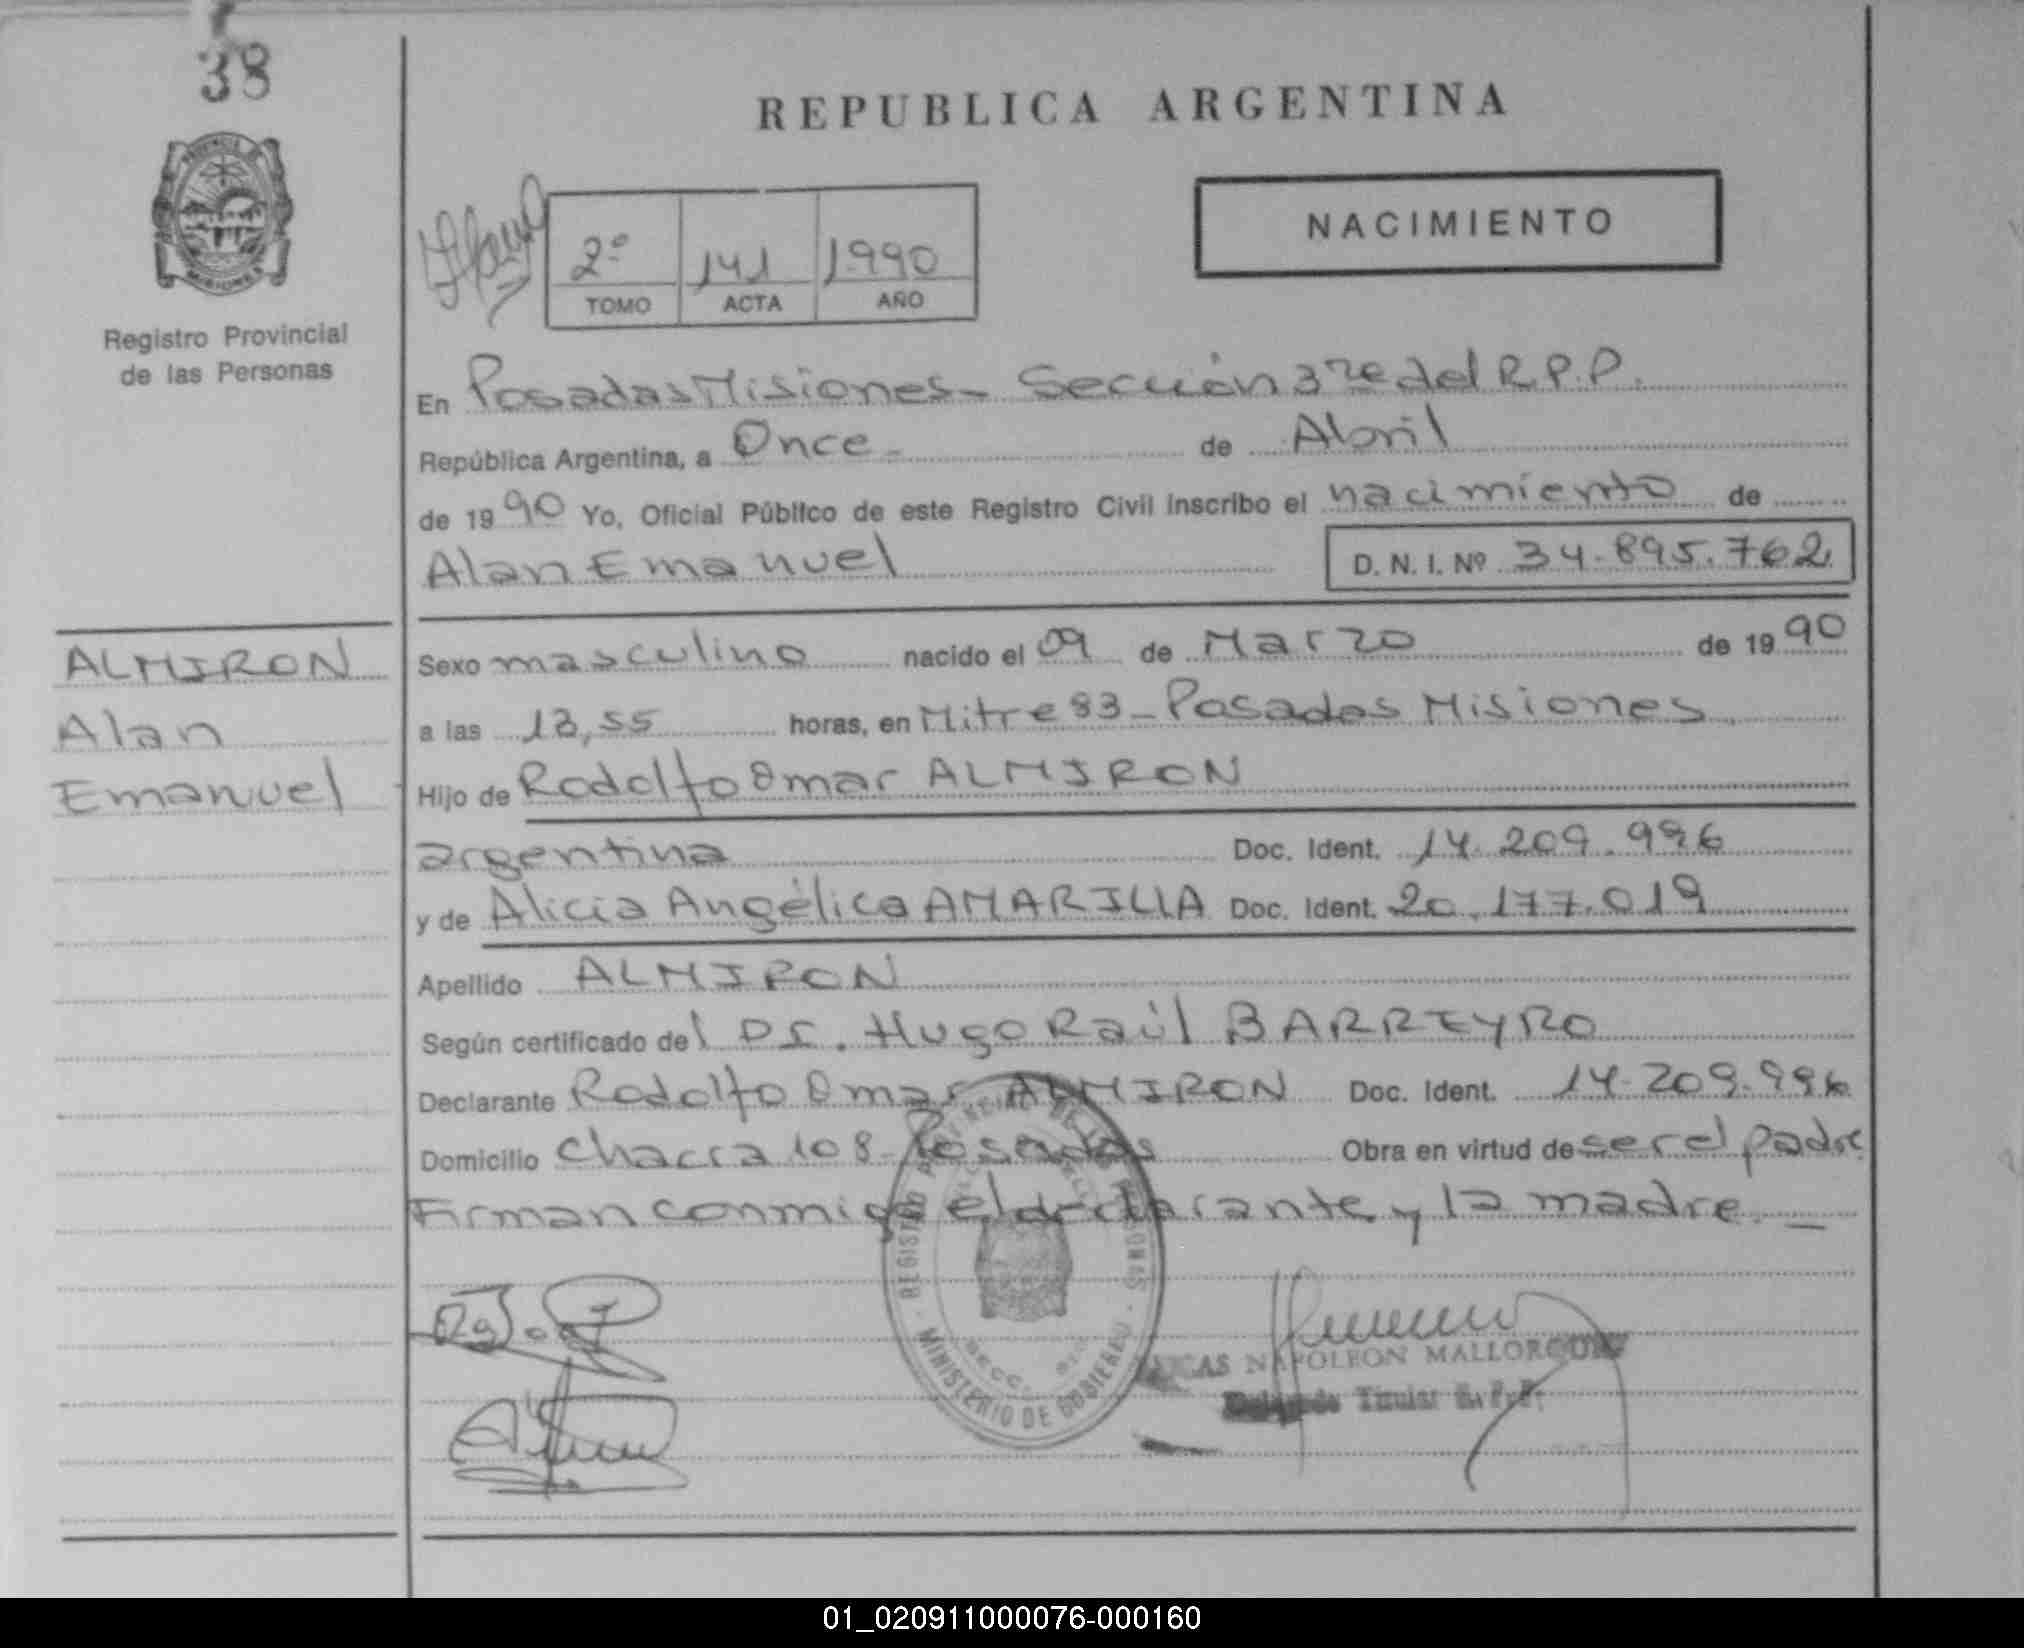 38
PROVINCIA DE
MISIONES
Registro Provincial
de las Personas
ALMIRON
Alan
Emanuel
REPUBLICA ARGENTINA
2º 141 1.990
TOMO ACTA AÑO
NACIMIENTO
En Posadas Misiones- Sección 3ra del R.P.P.
República Argentina, a Once- de Abril
de 1990 Yo, Oficial Público de este Registro Civil inscribo el nacimiento de
Alan Emanuel D. N. I. Nº 34.895.762
Sexo masculino nacido el 09 de Marzo de 1990
a las 13,55 horas, en Mitre 83- Posadas Misiones
Hijo de Rodolfo Omar ALMIRON
argentina Doc. Ident. 14.209.996
y de Alicia Angélica AMARILLA Doc. Ident. 20.177.019
Apellido ALMIRON
Según certificado del Dr. Hugo Raúl BARREYRO
Declarante Rodolfo Omar ALMIRON Doc. Ident. 14.209.996
Domicilio Chacra 108- Posadas Obra en virtud de ser el padre
Firman conmigo el declarante y la madre.-
REGISTRO DE LAS PERSONAS
MINISTERIO DE GOBIERNO
NAPOLEON MALLORQUIN
Delegado Titular R.P.P.
01_020911000076-000160